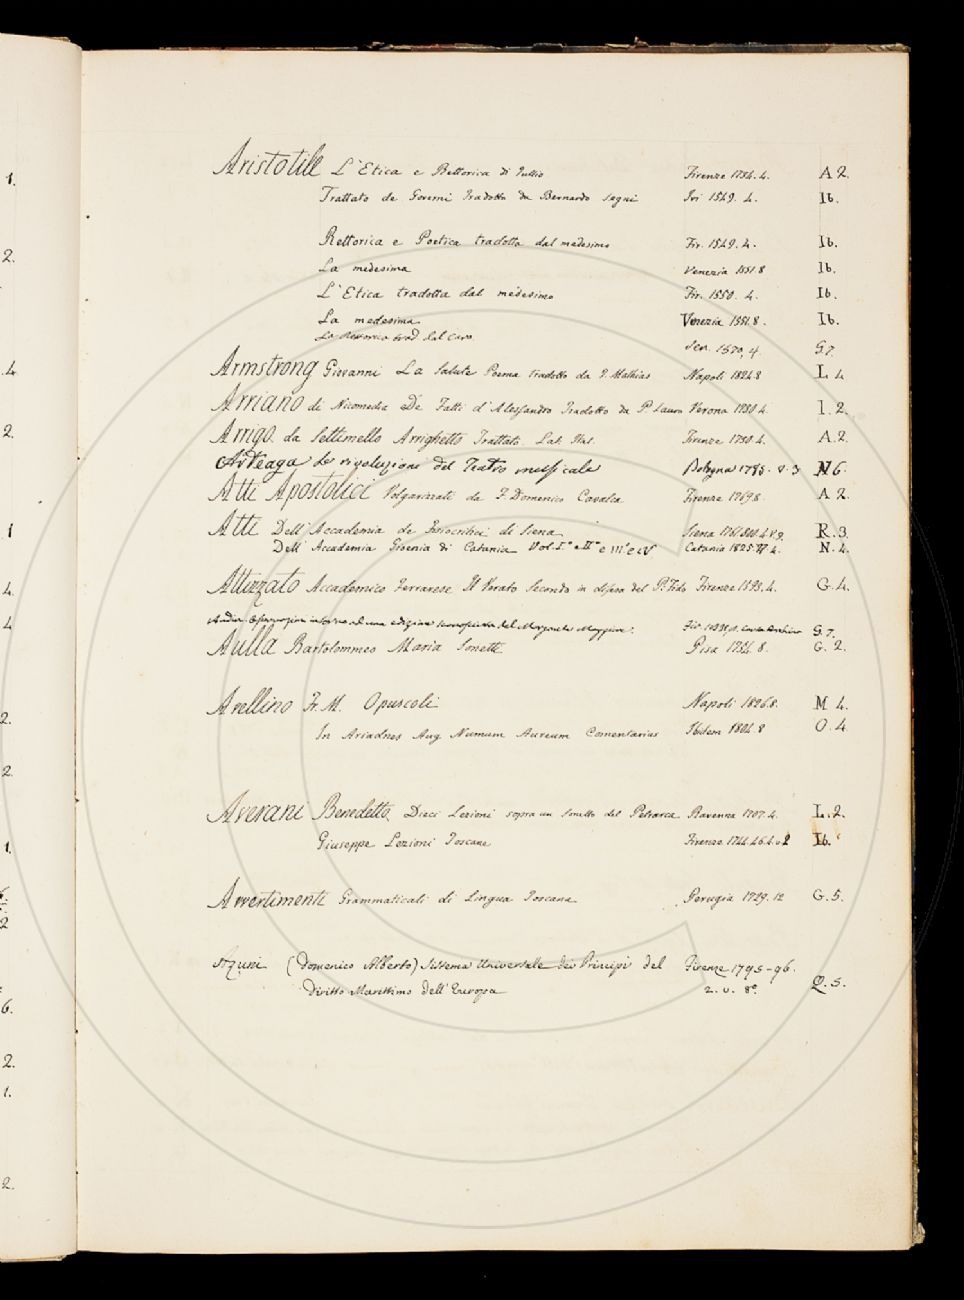 1.
2.
4.
2.
1
4.
4
2.
2.
1.
2
6.
2.
1.
2.
Aristotile L'Etica e Rettorica di Tullio Firenze 1734. 4. A 2.
Trattato de Governi Tradotto da Bernardo Segni Ivi 1549. 4. Ib.
Rettorica e Poetica tradotta dal medesimo Fir. 1549. 4. Ib.
La medesima Venezia 1551 8 Ib.
L'Etica tradotta dal medesimo Fir. 1550. 4. Ib.
La medesima Venezia 1551. 8. Ib.
La Rettorica trad. dal Caro Ven. 1570. 4. G. 7.
Armstrong Giovanni La Salute Poema tradotto da T. Mathias Napoli 1824. 8 L. 4
Arriano di Nicomedia De Fatti d'Alessandro Tradotto da P. Lauro Verona 1730 4. I. 2.
Arrigo da Settimello Arrighetto Trattato Lat. Ital. Firenze 1730. 4. A. 2.
Arteaga Le rivoluzioni del Teatro musicale Bologna 1783. v. 3 N 6.
Atti Apostolici Volgarizzati da F. Domenico Cavalca Firenze 1769. 8. A 2.
Atti Dell'Accademia de Fisiocritici di Siena Siena R. 3.
Dell'Accademia Gioenia di Catania Vol. I.° e II.° e III.° e IV Catania 1825. 4. N. 4.
Attizzato Accademico Ferrarese Il Verato Secondo in difesa del P. Fido Firenze 1593. 4. G. 4.
Audin Osservazioni intorno ad una edizione del Morgante Maggiore. G. 7.
Aulla Bartolommeo Maria Sonetti Pisa 1734. 8. G. 2.
Avellino Fr. M. Opuscoli Napoli 1826. 8. M 4.
In Ariadnes Aug. Numum Aureum Comentarius Ibidem 1804. 8 O. 4
Averani Benedetto, Dieci Lezioni sopra un Sonetto del Petrarca Ravenna 1707. 4. L. 2.
Giuseppe Lezioni Toscane Firenze 1744. 46. 4. v 2 Ib.
Avvertimenti Grammaticali di Lingua Toscana Perugia 1729. 12 G. 5.
Azuni (Domenico Alberto) Sistema Universale dei Principj del Firenze 1795-96.
Diritto Marittimo dell'Europa 2. v. 8°. Q. 5.